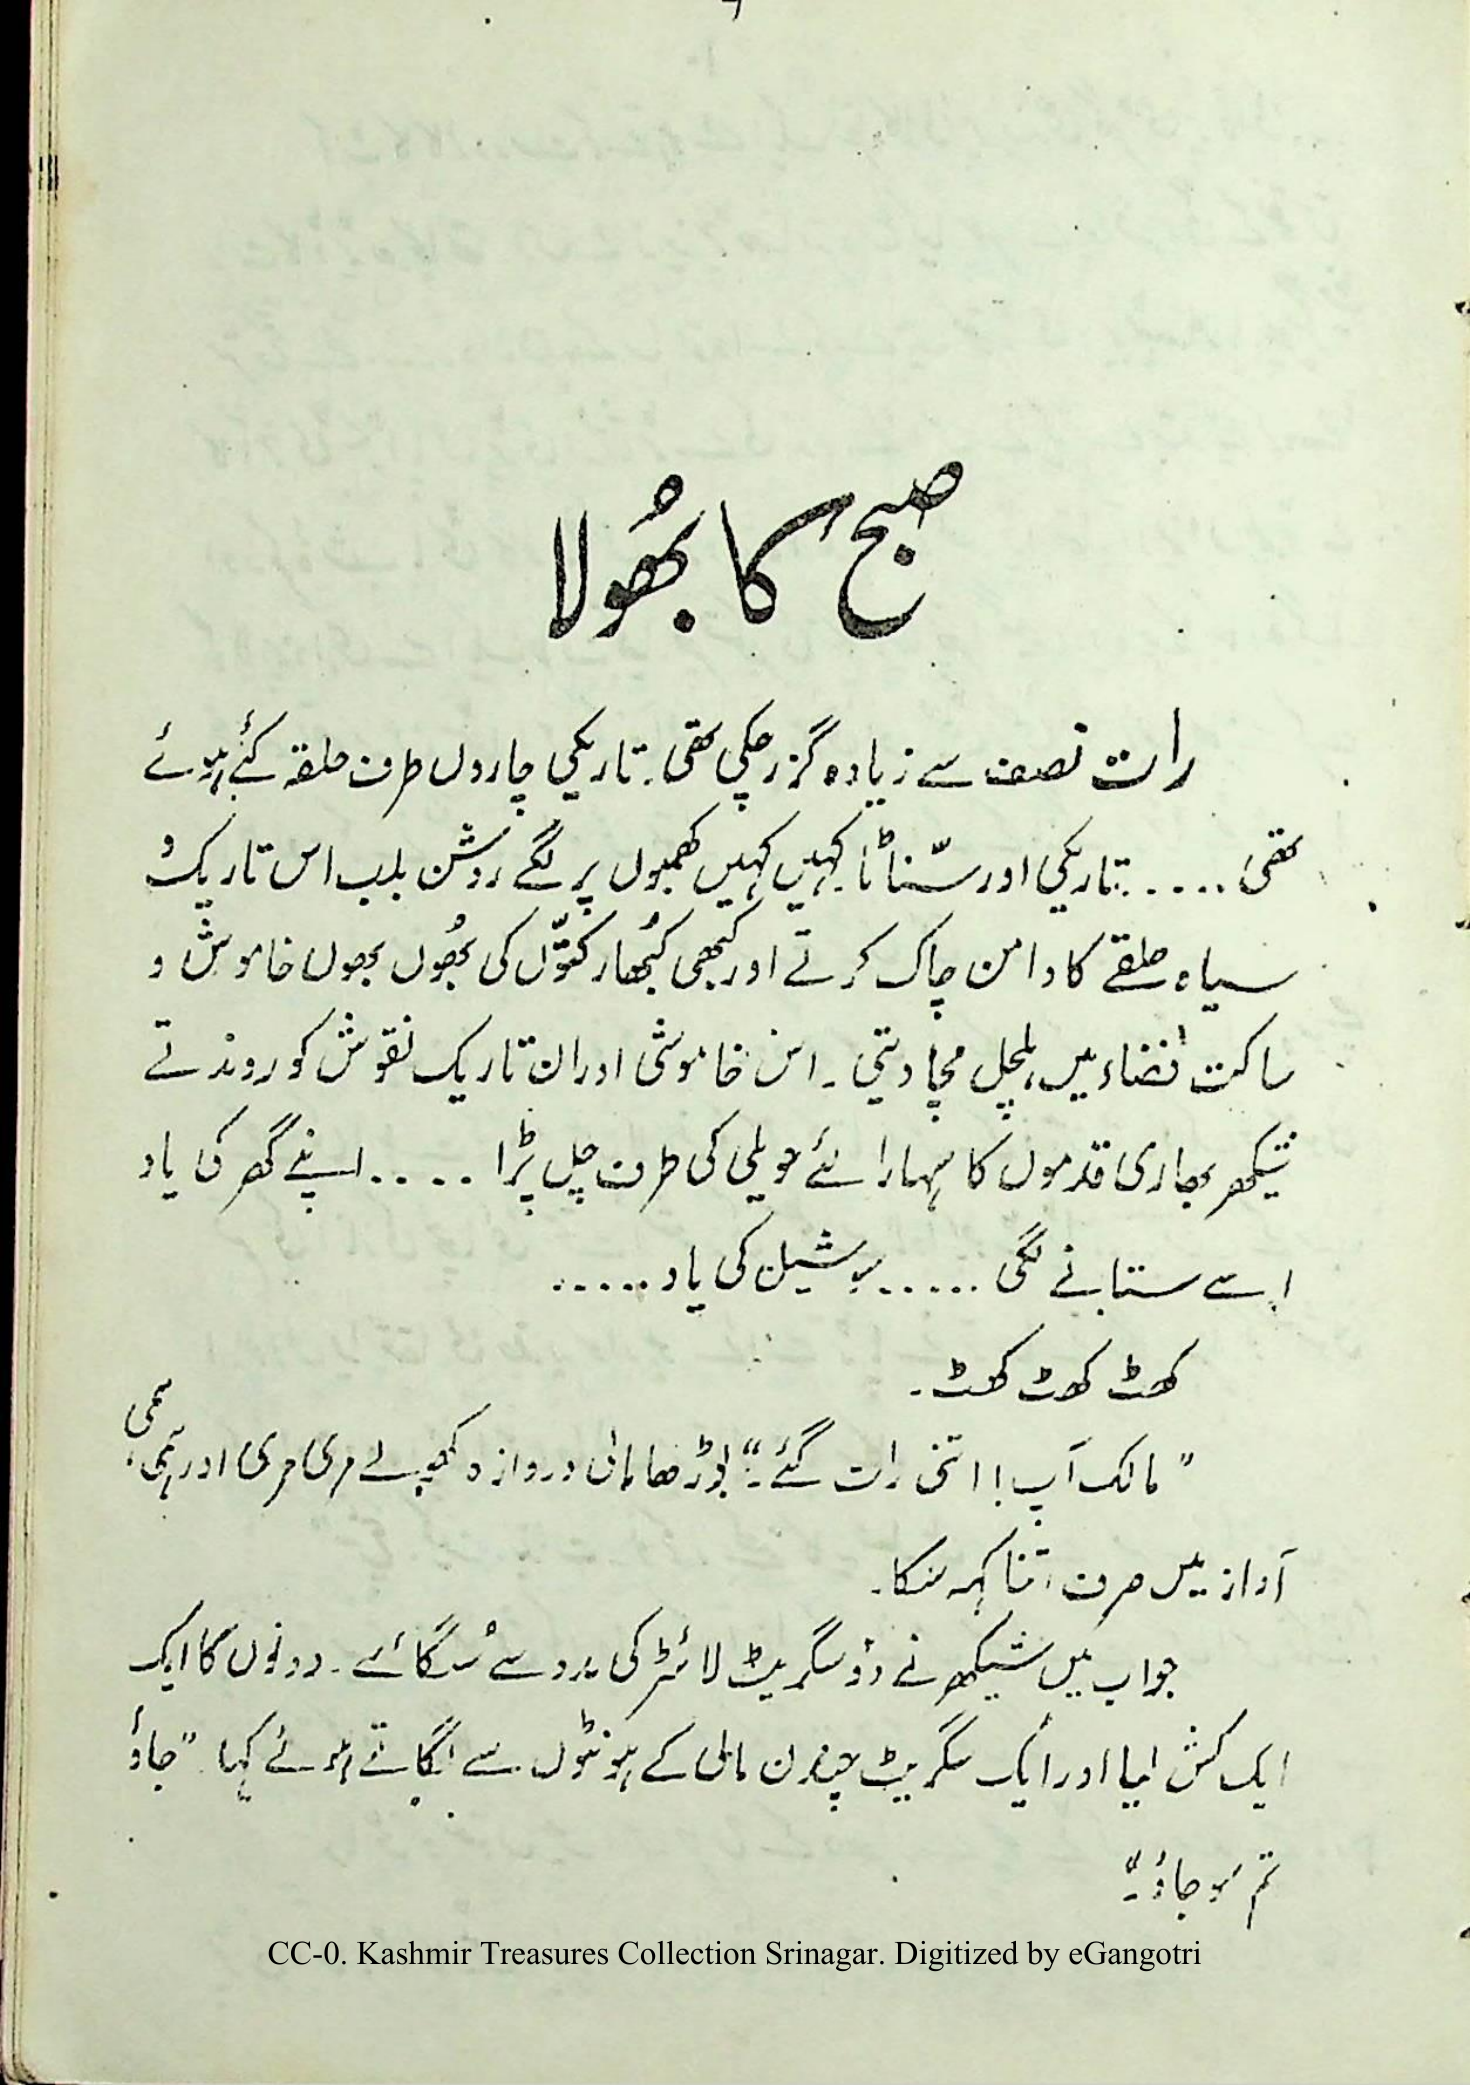 صبح کا بھُولا
رات نصف سے زیادہ گزر چکی تھی۔ تاریکی چاروں طرف حلقہ کئے ہوئے
تھی ..... تاریکی اور سنّاٹا کہیں کہیں کھمبوں پر لگے روشن بلب اس تاریک و
سیاہ حلقے کا دامن چاک کرتے اور کبھی کبُھار کتّوں کی بھُوں بھوں خاموش و
ساکت فضاء میں ہلچل مچا دیتی۔ اس خاموشی اور ان تاریک نقوش کو روندتے
شیکھر بھاری قدموں کا سہارا لئے حویلی کی طرف چل پڑا .... اپنے گھر کی یاد
اسے ستانے لگی ..... سوشیل کی یاد .....
کھٹ کھٹ کھٹ۔
"مالک آپ! اتنی رات گئے۔" بوڑھا مالی دروازہ کھولے مری مری اور سہمی سہمی
آواز میں صرف اتنا کہہ سکا۔
جواب میں شیکھر نے دو سگریٹ لائٹر کی مدد سے سُلگائے۔ دونوں کا ایک
ایک کش لیا اور ایک سگریٹ چندن مالی کے ہونٹوں سے لگاتے ہوئے کہا۔ "جاؤ
تم سو جاؤ۔"
CC-0. Kashmir Treasures Collection Srinagar. Digitized by eGangotri